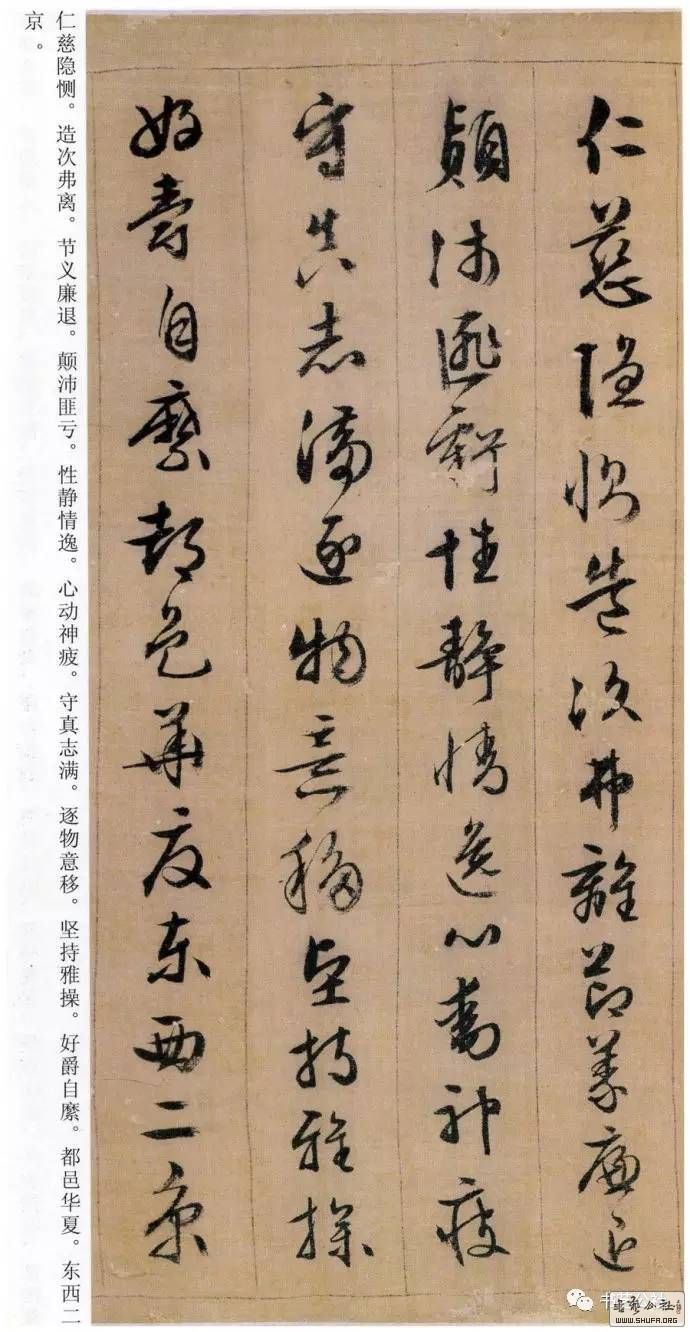 仁慈隱惻造次弗離節義廉退
顛沛匪虧性靜情逸心動神疲
守真志滿逐物意移堅持雅操
好爵自縻都邑華夏東西二京
仁慈隐恻。造次弗离。节义廉退。颠沛匪亏。性静情逸。心动神疲。守真志满。逐物意移。坚持雅操。好爵自縻。都邑华夏。东西二
京。
书艺公社
WWW.SHUFA.ORG